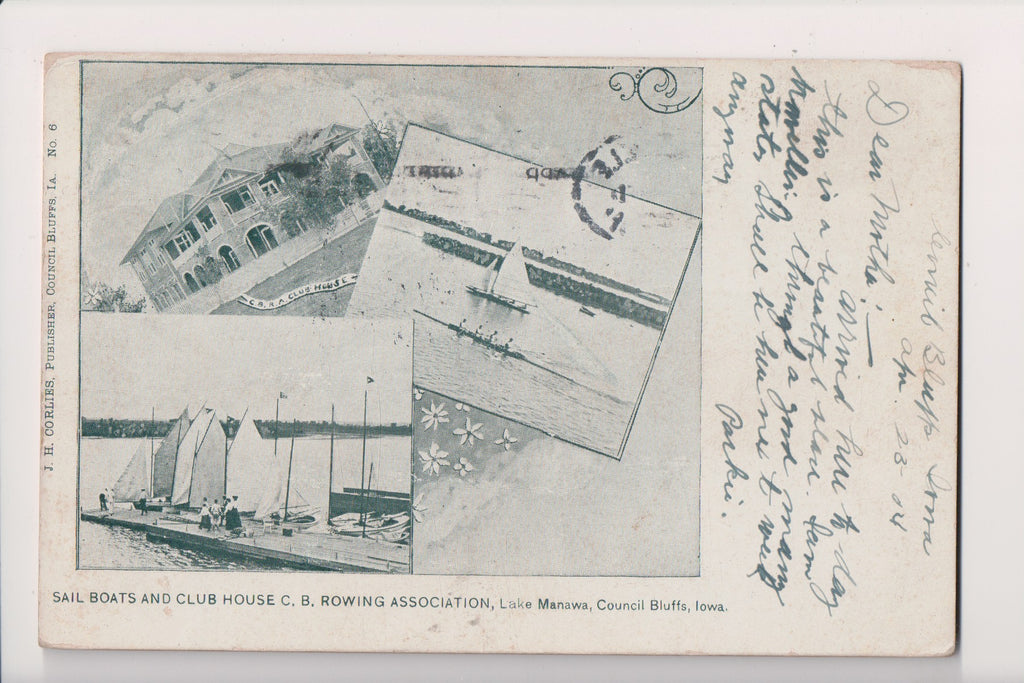 J. H. CORLIES, PUBLISHER, COUNCIL BLUFFS, IA. No. 6
C. B. R. A. CLUB HOUSE
SAIL BOATS AND CLUB HOUSE C. B. ROWING ASSOCIATION, Lake Manawa, Council Bluffs, Iowa.
Council Bluffs Iowa
Apr. 23 - 04
Dear Mother: —
arrived here to day
this is a beautiful place. I am
travelling through a good many
states. Shall be home to
anyway